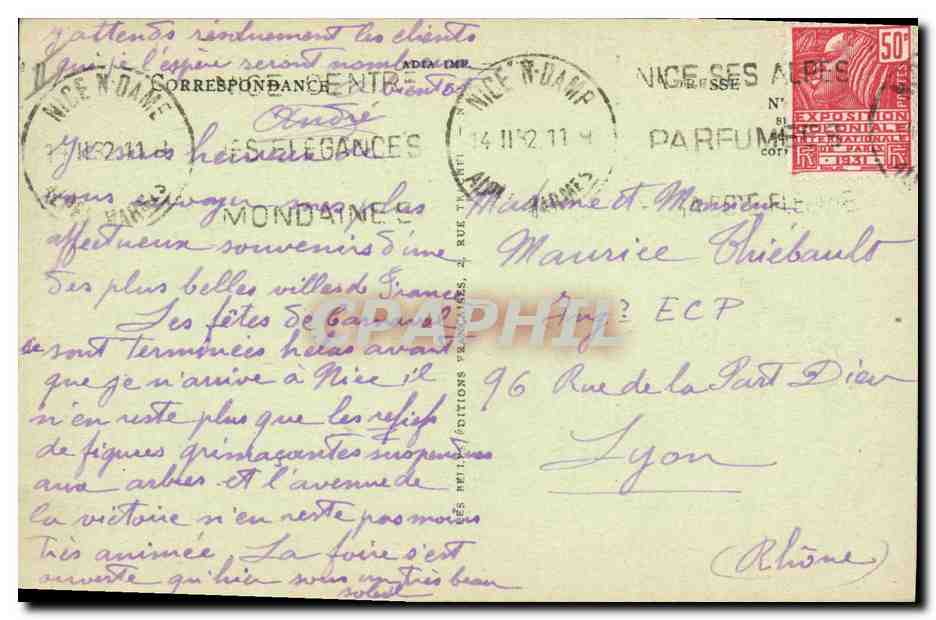 j'attends résolument les clients
qui je l'espère seront nombreux
bientôt
André
ADIA IMP.
CORRESPONDANCE
NICE N-DAME
14 II 32 11
ALPES MARMES
NICE CENTRE
DES ELEGANCES
MONDAINES
NICE N-DAME
14 II 32 11
ALPES MARMES
NICE SES ALPES
PARFUMERIE
ADRESSE
50c
POSTES
EXPOSITION
COLONIALE
INTERNATIONALE
DE PARIS
1931
Je suis heureux de
vous envoyer mes plus
affectueux souvenirs d'une
des plus belles villes de France
Les fêtes de Carnaval
se sont terminées hélas avant
que je n'arrive à Nice il
n'en reste plus que les reliefs
de figures grimaçantes suspendues
aux arbres et l'avenue de
la victoire n'en reste pas moins
très animée. La foire s'est
ouverte qu'hier sous un très beau
soleil
LES BELLES ÉDITIONS FRANÇAISES, 2, RUE
Madame et Monsieur
Maurice Thiébault
Ing? ECP
96 Rue de la Part Dieu
Lyon
(Rhône)
CPAPHIL